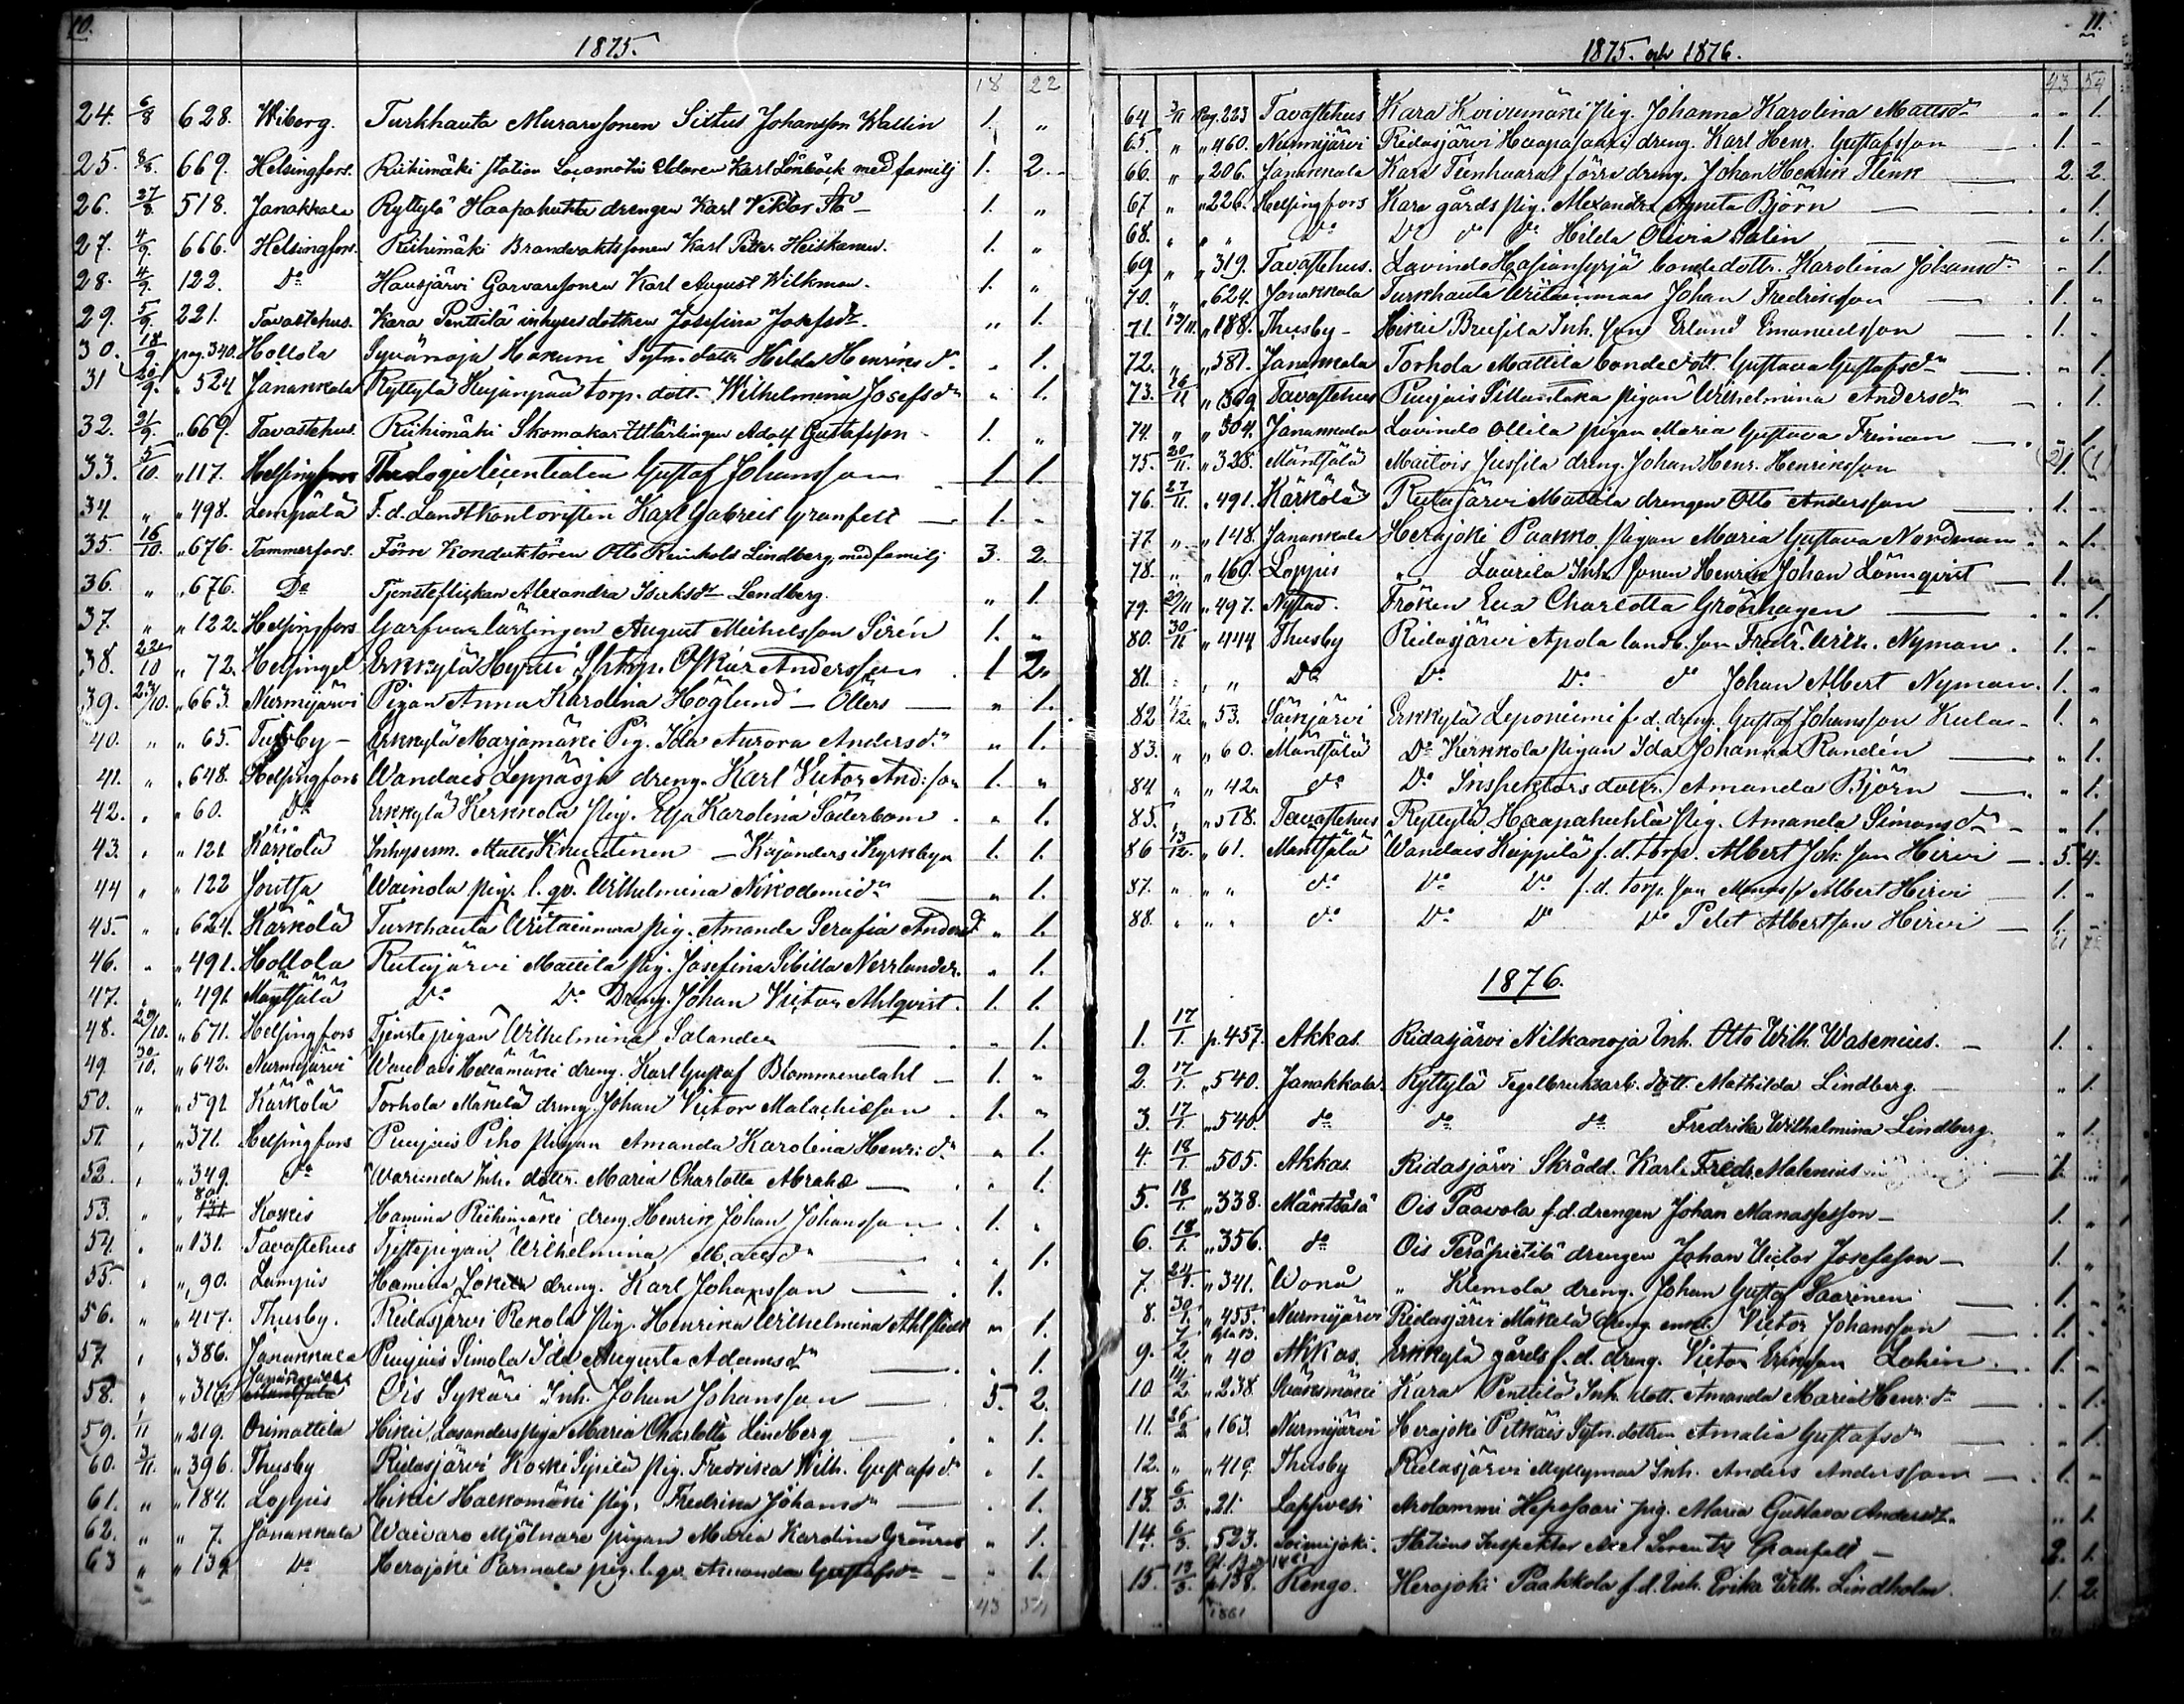 10.
1875.
18 22
24. 6/8 628. Wiborg. Turkhauta Muraresonen Sixtus Johansson Wallin 1. "
25. 8/8. 669. Helsingfors. Riihimäki station Locomotiv Eldaren Karl Lönbäck med familj 1. 2.
26. 27/8. 518. Janakkala Ryttylä Haapahuhta drengen Karl Viktor 1. "
27. 4/9. 666. Helsingfors. Riihimäki Brandvaktssonen Karl Petter Heiskanen. 1. "
28. 4/9. 122. Do Hausjärvi Garvaresonen Karl August Wilkman. 1. "
29. 5/9. 221. Tavastehus. Kara Penttilä inhysesdottren Josefina Josefsdr. " 1.
30. 18/9 pag. 340. Hollola Syvänoja Hakuni Sytn. dottr. Hilda Henriksdr " 1.
31 20/9. " 524 Janakkala Ryttylä Kujanpää torp. dott. Wilhelmina Josefsdr " 1.
32. 21/9. " 669. Tavastehus. Riihimäki Skomakar Lärlingen Adolf Gustafsson 1. "
33. 5/10. " 117. Helsingfors Theologielicentiaten Gustaf Johansson 1 1.
34. " " 498. Lempälä F. d. Landtkontoristen Karl Gabriel Granfelt 1. "
35. 16/10. " 676. Tammerfors. Förre Konduktören Otto Reinhold Lindberg, med familj 3. 2.
36 " " 676. Do Tjensteflickan Alexandra Lendberg. " 1.
37. " " 122. Helsingfors Garfvarlärlingen August Michelsson Sirén 1. "
38. 22/10 " 72. Helsinge Erkkylä Hyrtti Oskar Andersson 1 2.
39. 23/10. " 663. Nurmijärvi Pigan Anna Karolina Höglund — Ollers " 1.
40. " " 65. Tusby Erkkylä Marjamäki Pig. Ida Aurora Andersdr " 1.
41. " " 648. Helsingfors Wandais Leppäoja dreng. Karl Victor And:son 1. "
42. " " 60. Do Erkkylä Kerkkola pig. Elsa Karolina Söderbom " 1.
43. " " 121 Kärkölä Inhysesm. Matts Knuutinen — Kajanders i Kyrkbyn 1. 1.
44 " " 122 Joutsa Wainola pig. l. qv. Wilhelmina Nikodemidr " 1.
45. " " 624. Kärkölä Turkhauta Uritainmaa pig. Amanda Serafia Andersd. " 1.
46. " " 491. Hollola Rutajärvi Mattila pig. Josefina Sibilla Nerrlander. " 1.
47. " " 491. Mäntsälä Do Do Dreng. Johan Victor Ahlqvist. 1. 1.
48. 29/10. " 671. Helsingfors Tjenstepigan Wilhelmina Salander " 1.
49. 30/10. " 642. Nurmijärvi Wandais Heinämäki dreng. Karl Gustaf Blommendahl 1. "
50. " " 591 Kärkölä Torhola Mäkelä dreng. Johan Victor Malachiesson 1. "
51. " " 371. Helsingfors Puujais Piho pigan Amanda Karolina Henr:dr " 1.
52. " " 349. do Warunda Inh. dottr. Maria Charlotta Abrahd " 1.
53. " " 80 Koskis Hamina Riihimäki dreng. Henrik Johan Johansson 1. "
54. " " 131. Tavastehus Wilhelmina Mattsdr " 1.
55. " " 90. Lampis Hamina Jokela dreng. Karl Johansson 1.
56. " " 417. Thusby. Ridasjärvi Rekola pig. Henrika Wilhelmina Ahlstedt " 1.
57. " " 386. Janakkala Puujais Simola Ida Augusta Adamsdr " 1.
58. " " Janakkala Ois Sykäri Inh. Johan Johansson 5. 2.
59. 1/11 " 219. Orimattila Hikiä Maria Charlotta Lindberg " 1.
60. 3/11. " 396. Thusby Ridasjärvi Koski Sipilä pig. Fredrika Wilh. Gustafsdr " 1.
61. " " 184. Loppis Hikiä Halkomäki pig. Fredrika Johansdr " 1.
62. " " 7. Janakkala Waivaro Mjölnare pigan Maria Karolina Grönroos " 1.
63 " " 139 Do Herajoki Parmala pig. l. qv. Amanda Gustafsdr " 1.
43 54
11.
1875. och 1876.
43 54
64 3/11 Pag. 223 Tavastehus Kara Koivumäki pig. Johanna Karolina Mattsdr " 1.
65. " " 460. Nurmijärvi Ridasjärvi Haapasaari dreng. Karl Henr. Gustafsson 1. "
66. " " 206. Janakkala Kara Tienhaara förre dreng. Johan Henrik Flink 2. 2.
67 " " 226. Helsingfors Kara gårds pig. Alexandra Agneta Björn " 1.
68. " " " Do Do do Do Hilda Olivia Salin " 1.
69 " " 319. Tavastehus. Lavindo Hasiansyrjä bondedottr. Karolina Johansdr " 1.
70. " " 624. Janakkala Turkhauta Uritainmaa Johan Fredriksson 1. "
71. 13/11. " 188. Thusby Hikiä Prusila Inh. son Erland Emanuelsson 1. "
72. " " 581. Janakkala Torhola Mattila bondedott. Gustava Gustafsdr " 1.
73. 16/11 " 369. Tavastehus Puujais Sillantaka pigan Wilhelmina Andersdr " 1.
74. " " 304. Janakkala Lavindo Ollila pigan Maria Gustava Friman " 1.
75. 20/11. " 328. Mäntsälä Maitois Jussila dreng. Johan Henr. Henriksson 1. "
76. 27/11. " 491. Kärkölä Rutajärvi Mattila drengen Otto Andersson 1. "
77 " " 148. Janakkala Herajoki Paakko pigan Maria Gustava Nordman " 1.
78. " " 160. Loppis " Laurila Inh. sonen Henrik Johan Lönnqvist 1. "
79. 29/11 " 497. Nystad. Fröken Eva Charlotta Grönhagen " 1.
80. 30/11 " 444 Thusby Ridasjärvi Apola landb. son Fredr. Wilh. Nyman. 1. "
81. " " " Do Do Do do Johan Albert Nyman. 1. "
82 11/12. " 53. Säkjärvi Erkkylä Leponiemi f. d. dreng. Gustaf Johansson Kula 1. "
83. " " 60. Mäntsälä Do Kerkkola pigan Ida Johanna Randén " 1.
84 " " 42. do Do Inspektors dottr. Amanda Björn " 1.
85. " " 518. Tavastehus Ryttylä Haapahuhta pig. Amanda Simonsdr " 1.
86 13/12. " 61. Mäntsälä Wandais Kuppilä f. d. torp. Albert Joh. son Hirvi 5. 4.
87. " " " do Do Do f. d. torp. son Manasse Albert Hirvi 1. "
88. " " " do Do Do Do Petet Albertsson Hirvi 1. "
1876.
1. 17/1. p. 457. Akkas. Ridasjärvi Nilkanoja Inh. Otto Wilh. Wasenius. 1. "
2. 17/1. " 540. Janakkala Ryttylä Tegelbruksarb. dott. Mathilda Lindberg " 1.
3. 17/1. " 540. do do do Fredrika Wilhelmina Lindberg. " 1.
4. 18/1. " 505. Akkas Ridasjärvi Skrädd. Karl Fredr. Malenius 1.
5. 18/1. " 338. Mäntsälä Ois Paavola f. d. drengen Johan Manassesson 1. "
6. 18/1. " 356. do Ois Peräpietilä drengen Johan Victor Josefsson 1. "
7. 24/1. " 341. Wånå " Klemola dreng. Johan Gustaf Saarinen. 1. "
8. 30/1. " 455. Nurmijärvi Ridasjärvi Mäkelä dreng. Victor Johansson 1. "
9. 7/2. " 40 Akkas. Erkkylä gårds f. d. dreng. Victor Eriksson Lohin. 1. "
10 14/2. " 238. Sääksmäki Kara Penttilä Inh. dott. Amanda Maria Henr:dr " 1.
11. 26/2 " 163. Nurmijärvi Herajoki Pitkäis Sytn. dottren Amalia Gustafsdr " 1.
12. " " 419. Thusby Ridasjärvi Myllymaa Inh. Anders Andersson 1. "
13. 6/3. " 21. Lappvesi Arolammi Heposaari pig. Maria Gustava Andersdr. " 1.
14. 6/3. " 523. Loimijoki. Stations Inspektor Axel Lorentz Granfelt 2. 1.
15. 13/3. p. 138. Rengo. Herajoki Paakkola f. d. Inh. Erika Wilh. Lindholm. 1. 2.
1861